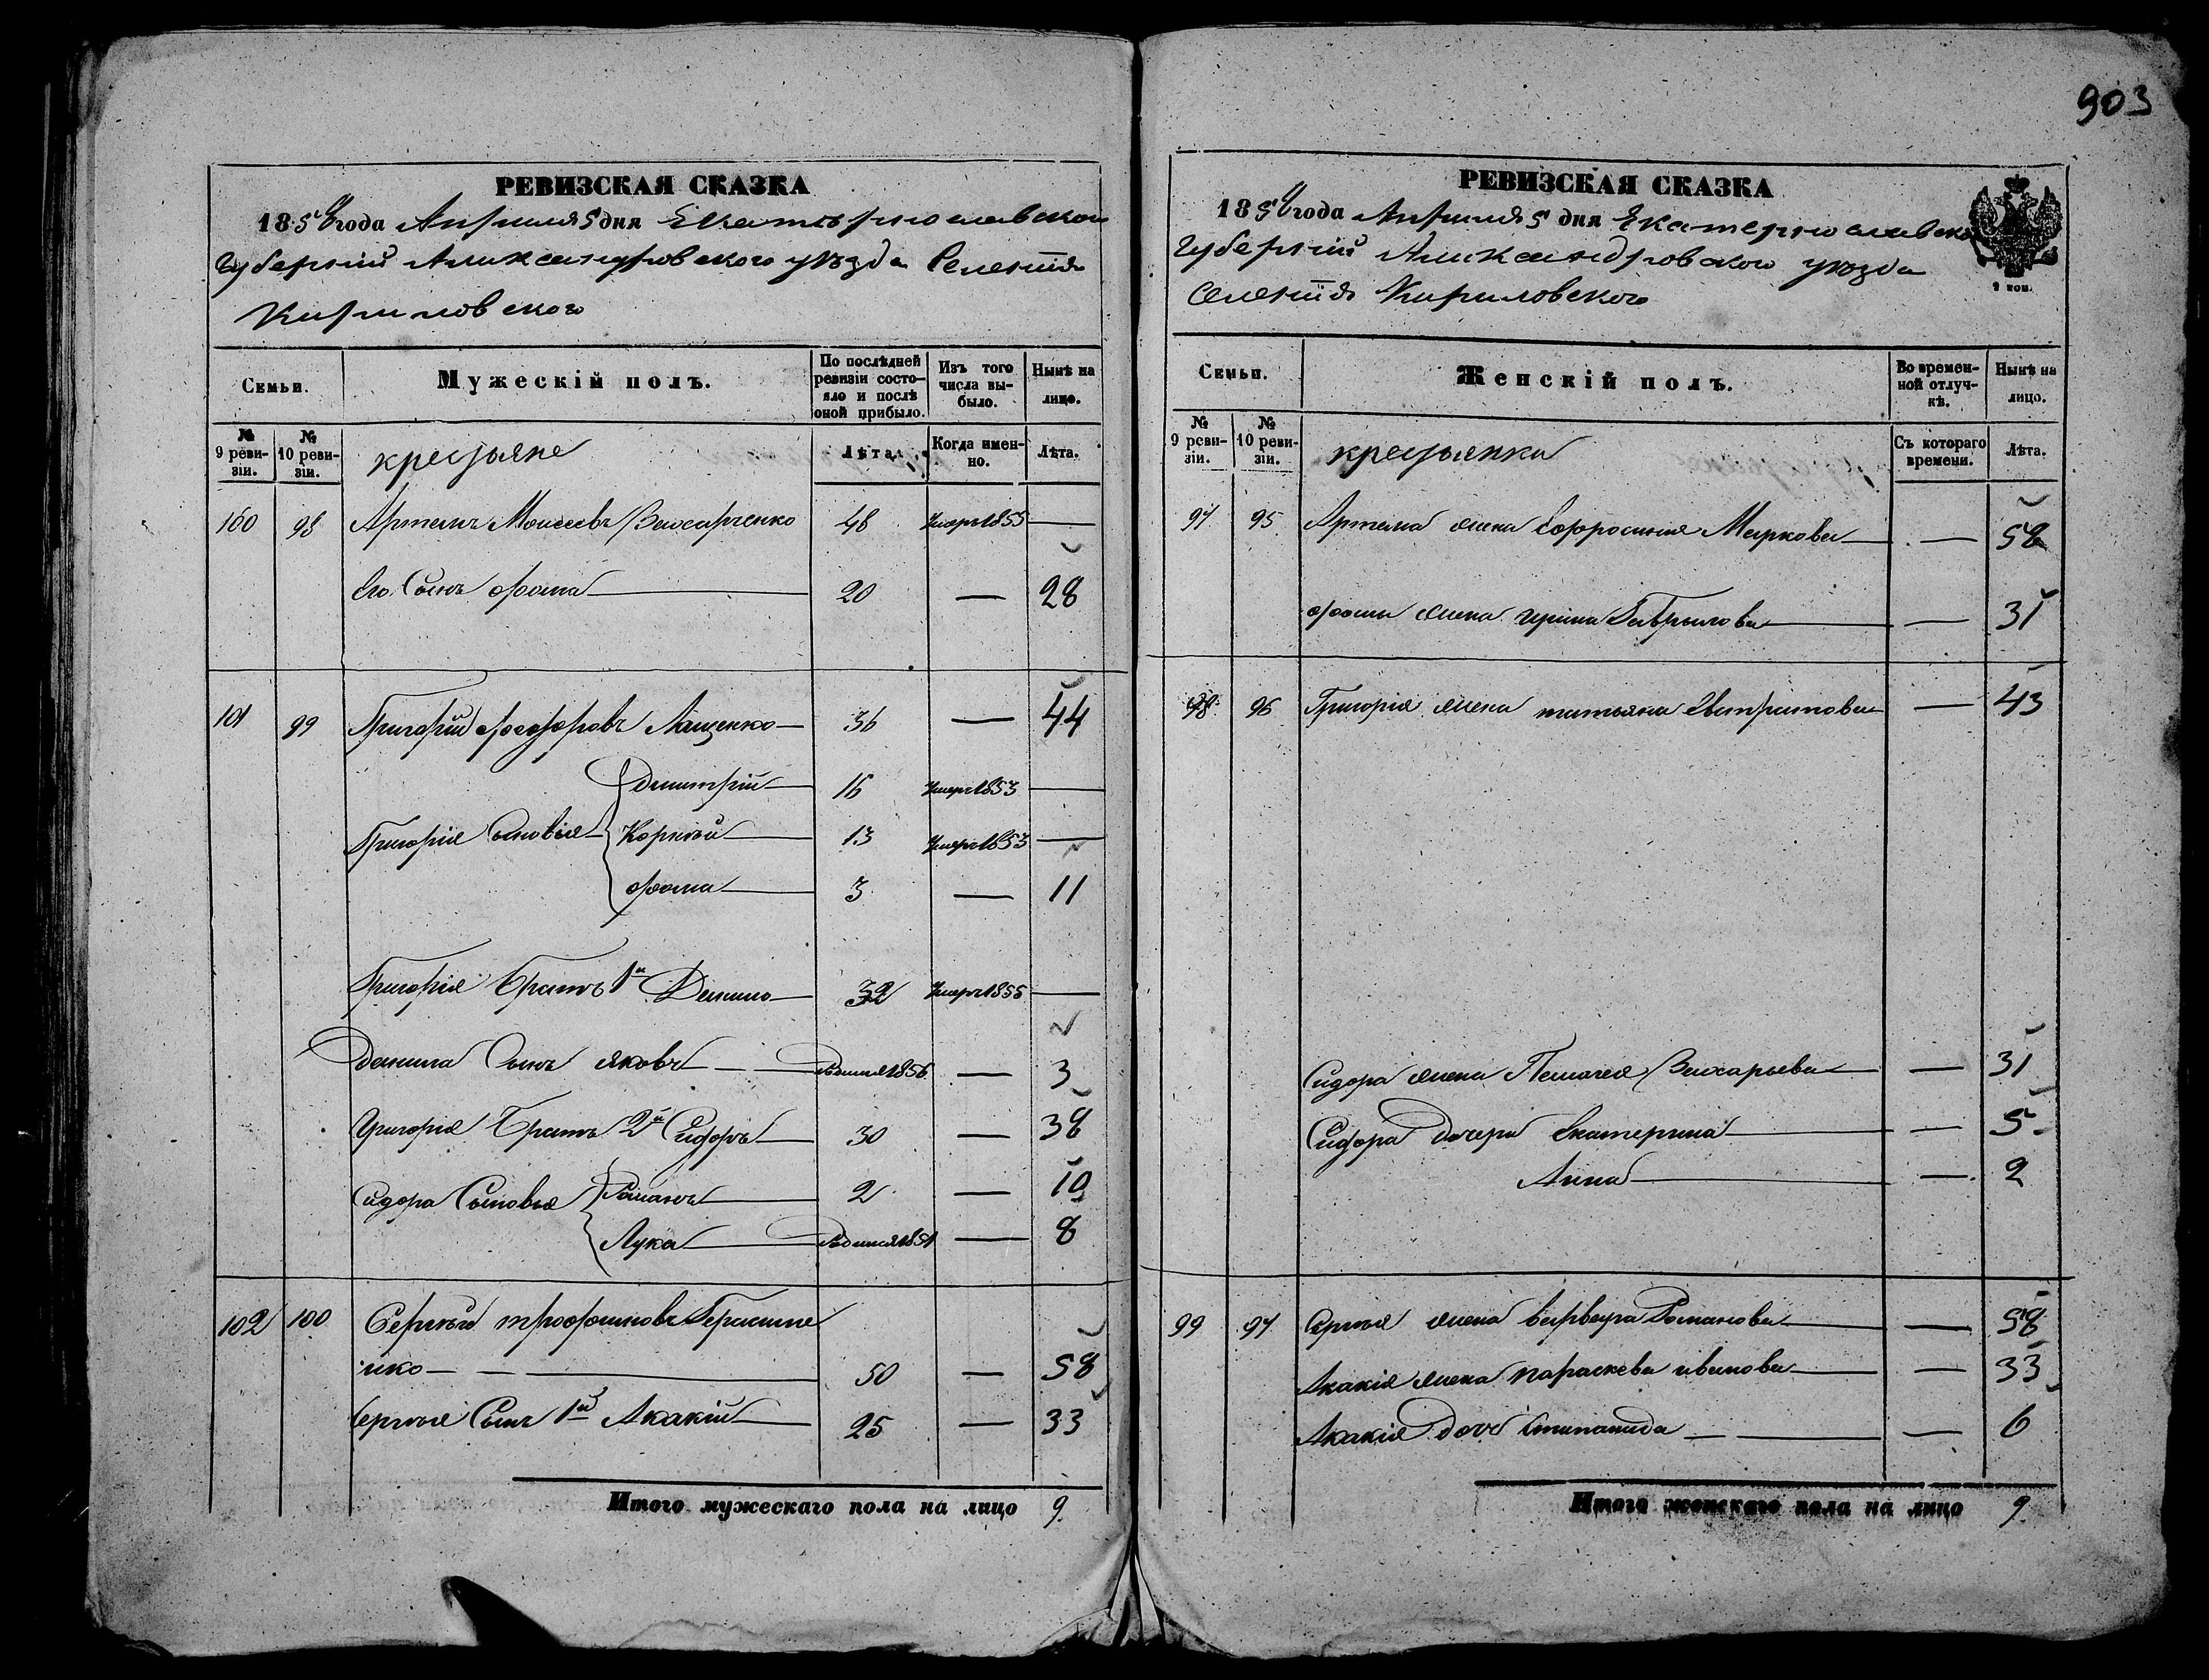 903
РЕВИЗСКАЯ СКАЗКА
1858 года Апреля 5 дня Екатеринославской
Губернии Александровского уезда Селения
Кириловского
Семьи.
Мужескій полъ.
По послѣдней ревизіи состо-яло и послѣ оной прибыло.
Изъ того числа вы-было.
Нынѣ на лицо.
№ 9 реви-зіи.
№ 10 реви-зіи.
крестьяне
Лѣта.
Когда имен-но.
Лѣта.
100 98 Артемъ Моисеевъ Захарченко 48 Умеръ 1855 —
Его Сынъ Фома 20 — 28
101 99 Григорій Федоровъ Лященко 36 — 44
Димитрій 16 Умеръ 1853 —
Григорія Сыновья Корнѣй 13 Умеръ 1853 —
Фома 3 — 11
Григорія Братъ 1й Данило 32 Умеръ 1855 —
Данила Сынъ Яковъ — 1856 — 3
Григорія Братъ 2й Сидоръ 30 — 38
Сидора Сыновья Романъ 2 — 10
Лука — — 8
102 100 Сергѣй Трофимовъ Герасиме
нко — 50 — 58
Сергѣя Сынъ 1й Акакій 25 — 33
Итого мужескаго пола на лицо 9.
РЕВИЗСКАЯ СКАЗКА
1858 года Апреля 5 дня Екатеринославской
Губерніи Александровского уезда
Селенія Кириловского
2 коп.
Семьи.
Женскій полъ.
Во времен-ной отлуч-кѣ.
Нынѣ на лицо.
№ 9 реви-зіи.
№ 10 реви-зіи.
крестьянки
Съ котораго времени.
Лѣта.
97 95 Артема жена Ефросинія Маркова — 58
Фомы жена Ирина Гаврилова — 31
98 96 Григорія жена Татьяна Евстратова — 43
Сидора жена Пелагея Захарьева — 31
Сидора дочери Екатерина — 5
Анна — 2
99 97 Сергѣя жена Варвара Романова — 58
Акакія жена Параскева Иванова — 33
Акакія дочь Степанида — 6
Итого женскаго пола на лицо 9.